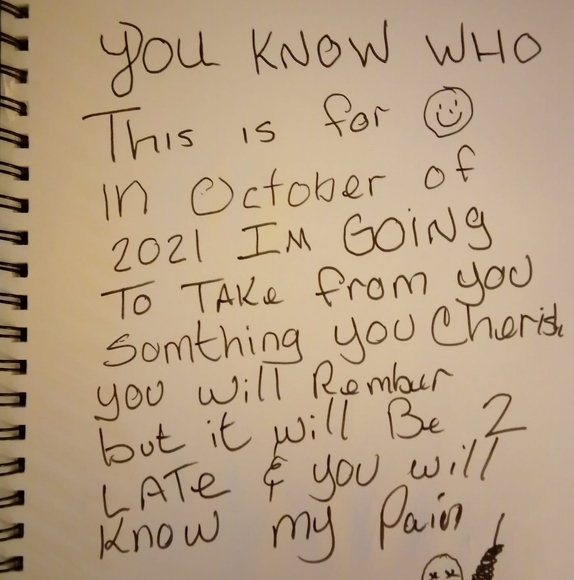 YOU KNOW WHO
THIS is for
In October of
2021 IM GOiNG
To TAKe from you
Somthing you Cherish
you will Rembur
but it will Be 2
LATe & you will
Know my Pain